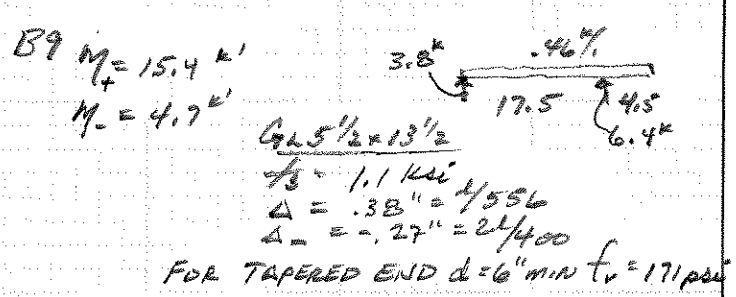 B9 M+ = 15.4 k'
M- = 4.7 k'
3.8k
.46 k/'
17.5
4.5
6.4k
GL 5 1/2 x 13 1/2
fb = 1.1 ksi
Δ = .38" = l/556
Δ- = -.27" = 2l/400
FOR TAPERED END d=6" MIN fv = 171 psi